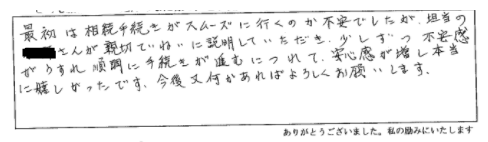 最初は相続手続きがスムーズに行くのか不安でしたが、担当の
さんが親切ていねいに説明していただき、少しずつ不安感
がうすれ順調に手続きが進むにつれて、安心感が増し本当
に嬉しかったです。今後又何かあればよろしくお願いします。
ありがとうございました。私の励みにいたします